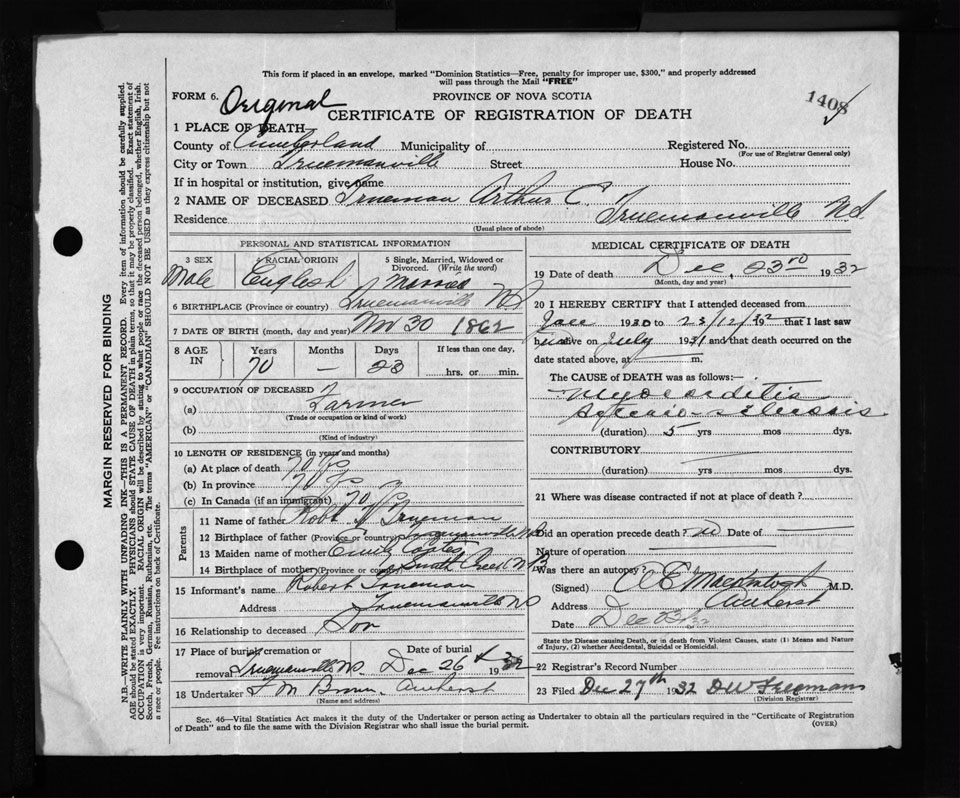 This form if placed in an envelope, marked "Dominion Statistics—Free, penalty for improper use, $300," and properly addressed
will pass through the Mail "FREE"
FORM 6. Original PROVINCE OF NOVA SCOTIA 1408
CERTIFICATE OF REGISTRATION OF DEATH
1 PLACE OF DEATH
County of Cumberland Municipality of Registered No.
(For use of Registrar General only)
City or Town Truemanville Street House No.
If in hospital or institution, give name
2 NAME OF DECEASED Trueman Arthur C.
Residence Truemanville N.S.
(Usual place of abode)
PERSONAL AND STATISTICAL INFORMATION
3 SEX 4 RACIAL ORIGIN 5 Single, Married, Widowed or
Divorced. (Write the word)
Male English Married
6 BIRTHPLACE (Province or country) Truemanville NS
7 DATE OF BIRTH (month, day and year) Nov 30 1862
8 AGE IN Years Months Days If less than one day,
70 — 23 hrs. or min.
9 OCCUPATION OF DECEASED
(a) Farmer
(Trade or occupation or kind of work)
(b)
(Kind of industry)
10 LENGTH OF RESIDENCE (in years and months)
(a) At place of death 70 yrs
(b) In province 70 yrs
(c) In Canada (if an immigrant) 70 yrs
Parents
11 Name of father Robt Trueman
12 Birthplace of father (Province or country) Truemanville NS
13 Maiden name of mother Coates
14 Birthplace of mother (Province or country) Creek NB
15 Informant's name Robert Trueman
Address Truemanville NS
16 Relationship to deceased Son
17 Place of burial, cremation or removal Date of burial
Truemanville NS. Dec 26th 1932
18 Undertaker Brown Amherst
(Name and address)
MEDICAL CERTIFICATE OF DEATH
19 Date of death Dec. 23rd 1932
(Month, day and year)
20 I HEREBY CERTIFY that I attended deceased from
1930 to 23/12/32 that I last saw
alive on July 1931 and that death occurred on the
date stated above, at — m.
The CAUSE OF DEATH was as follows:—
Myocarditis
(duration) 5 yrs mos dys.
CONTRIBUTORY
(duration) yrs mos dys.
21 Where was disease contracted if not at place of death?
Did an operation precede death? no Date of
Nature of operation
Was there an autopsy?
(Signed) C E MacIntosh M.D.
Address Amherst
Date Dec 23/32
State the Disease causing Death, or in death from Violent Causes, state (1) Means and Nature
of Injury, (2) whether Accidental, Suicidal or Homicidal.
22 Registrar's Record Number
23 Filed Dec 27th 1932
(Division Registrar)
Sec. 46—Vital Statistics Act makes it the duty of the Undertaker or person acting as Undertaker to obtain all the particulars required in the "Certificate of Registration
of Death" and to file the same with the Division Registrar who shall issue the burial permit. (OVER)
MARGIN RESERVED FOR BINDING
N.B.—WRITE PLAINLY WITH UNFADING INK—THIS IS A PERMANENT RECORD. Every item of information should be carefully supplied.
AGE should be stated EXACTLY. PHYSICIANS should STATE CAUSE OF DEATH in plain terms, so that it may be properly classified. Exact statement of
OCCUPATION is very important. RACIAL ORIGIN will be described by stating to what people or race the deceased person belonged, whether English, Irish,
Scotch, French, German, Russian, Ruthenian, etc. The terms "AMERICAN" or "CANADIAN" SHOULD NOT BE USED as they express citizenship but not
a race or people. See instructions on back of Certificate.